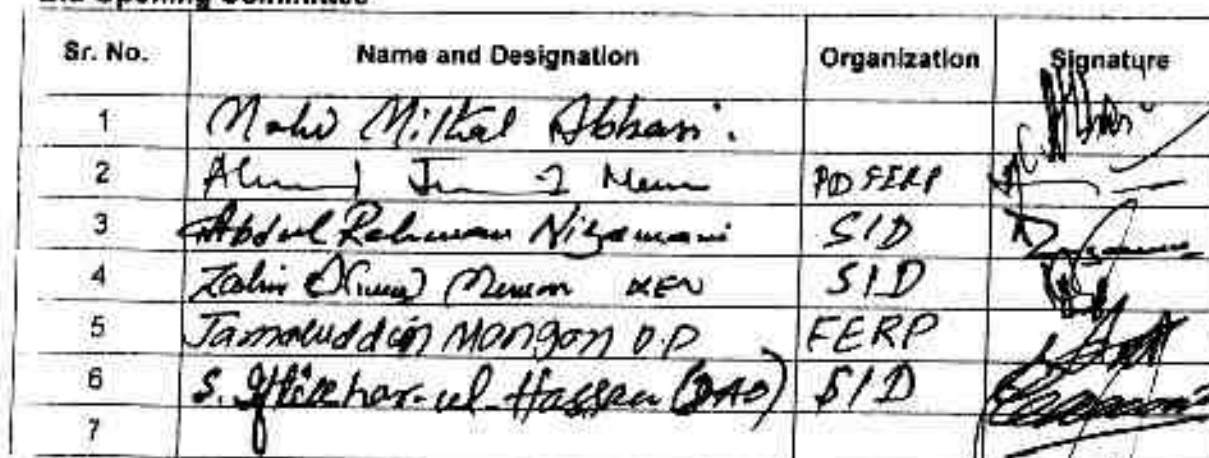 Bid Opening Committee
Sr. No. Name and Designation Organization Signature
1 Mithal Abbasi.
2 PD FERP
3 Abdul Rehman Nizamani SID
4 Memon XEN SID
5 Jamaluddin Mangan D.P FERP
6 S. Iftikhar-ul-Hassan (DAO) SID
7